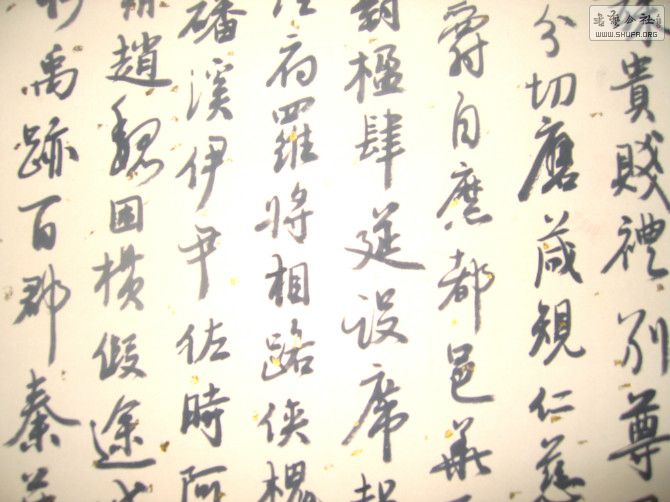 殊貴賤禮別尊
分切磨箴規仁慈
爵自縻都邑華
對楹肆筵設席
府羅將相路俠槐
磻溪伊尹佐時阿
趙魏困橫假途
禹跡百郡秦
書藝公社
WWW.SHUFA.ORG